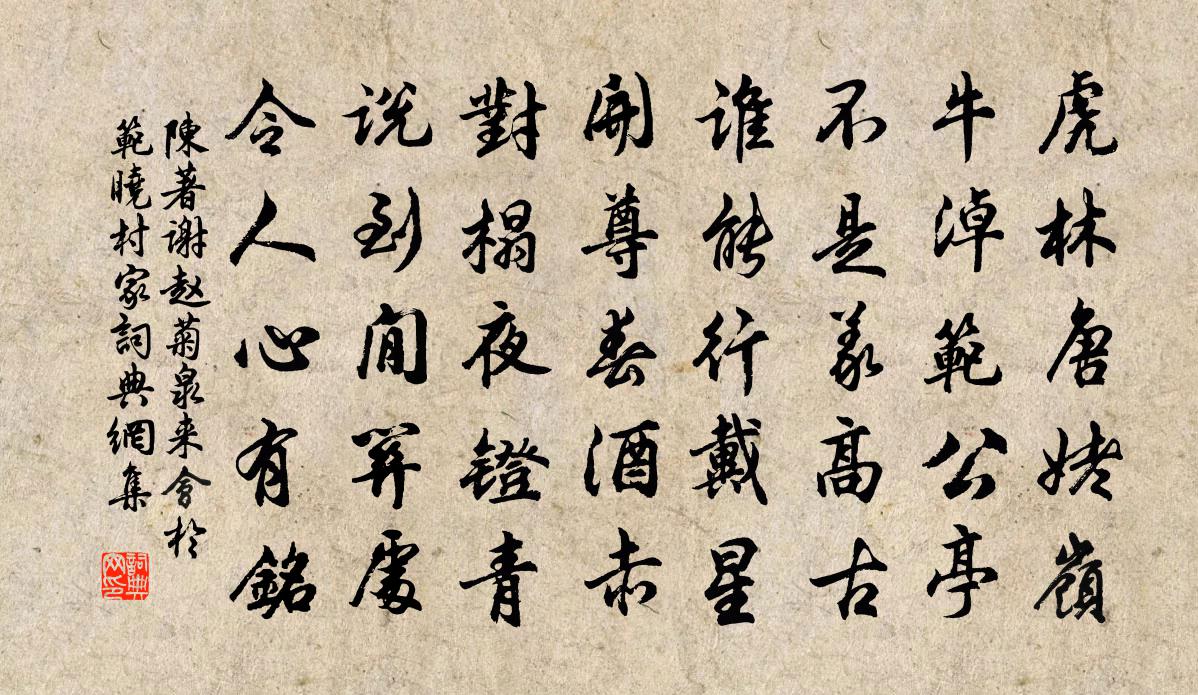 虎林唐姥嶺
牛淖範公亭
不是義高古
谁能行戴星
開尊春酒赤
對榻夜鐙青
说到間關處
令人心有銘
陳著谢赵菊泉来會於
範曉村家詞典網集
詞典网印